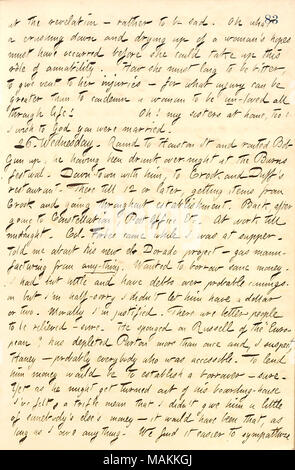 83
at the revelation — rather to be sad. Oh what
a crushing down and drying up of a woman's hopes
must have occurred before she could take up this
role of amiability. How she must long to be bitter,
to give vent to her injuries — for what injury can be
greater than to condemn a woman to be un-loved all
through life! Oh! my sisters at home, too!
I wish to God you were married!
26. Wednesday. Round to Houston St and routed Bob
Gun up, he having been drunk over night at the Burns
festival. Down-town with him, to Crook and Duff's
restaurant. There till 12 or later, getting items from
Crook and going throughout establishment. Back, after
gone to Constellation, Post Office, &c. At work till
midnight. Cooke came while I was at supper,
told me about his new El Dorado project — gas manu-
facturing from any-thing. Wanted to borrow some money.
I had but little and have debts over probable comings-
in but I'm half-sorry I didn't let him have a dollar
or two. Morally I'm justified. There are better people
to be relieved — sure. He sponged on Russell of the "Euro-
pean", has depleted Parton more than once and, I suspect,
Haney — probably everybody who was accessible. To lend
him money would be to establish a borrower — sure.
Yet as he might get turned out of his boarding-house
I've felt a trifle mean that I didn't give him a little
of somebody's else's money — it would have been that, as
long as I owe anything. We find it easier to sympathize
alamy
Image ID: MAKKGJ
www.alamy.com